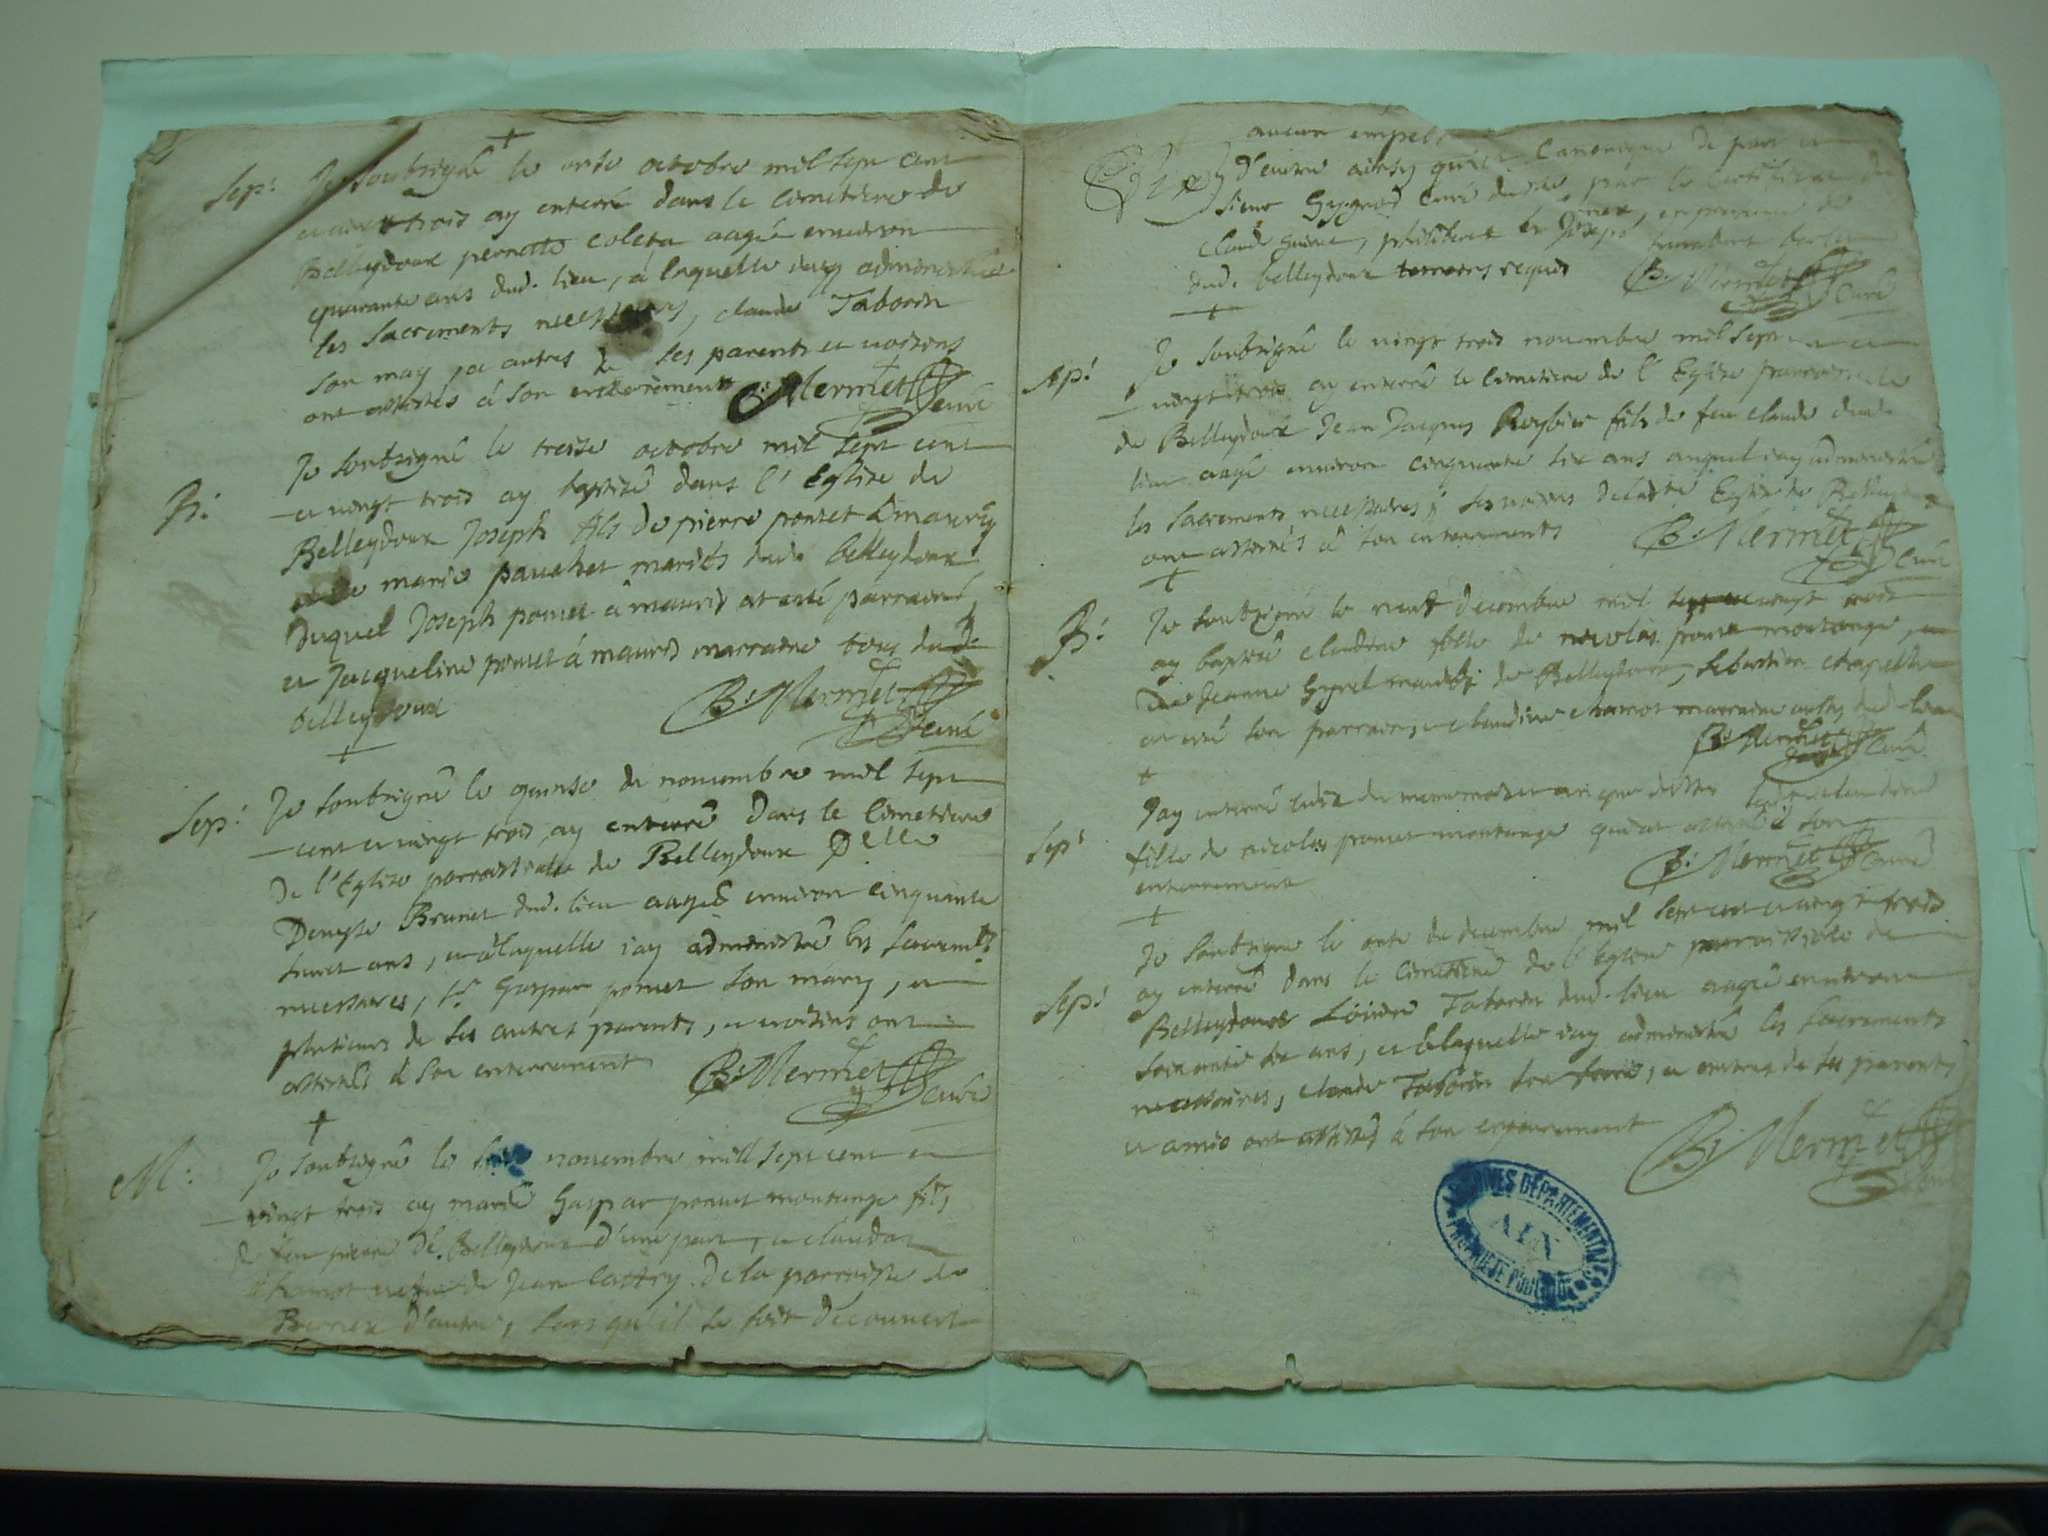 Sep: Je soubsigné le onze octobre mil sept cent
et vingt trois ay enterré dans le cimetiere de
Belleydoux pernette coleta aagée environ
quarante ans dud. lieu, a laquelle iay administré
les sacrements necessaires, claude Taborin
son mary, et autres de ses parents et voisins
ont assistés á son enterrement B: Mermet curé
B: Je soubsigné le treise octobre mil sept cent
et vingt trois ay baptisé dans l'Eglise de
Belleydoux Joseph fils de pierre ponset
marie mariés dud. belleydoux
duquel Joseph ponset á mauris at esté parrain
et Jacqueline ponset á mauris marraine tous dud.
belleydoux B: Mermet curé
Sep: Je soubsigné le quinse de novembre mil sept
cent et vingt trois ay enterré dans le cimetiere
de l'Eglise parroissiale de Belleydoux Delle
Denyse Brunet dud. lieu aagée environ cinquante
ans, et á laquelle iay administré les sacremts
necessaires, sr Gaspar ponset son mary, et
plusieurs de ses autres parents, et voisins ont
assistés á son enterrement B: Mermet curé
M: Je soubsigné le novembre mill sept cent et
vingt trois ay marié Gaspar ponset montange fils
de feu pierre de Belleydoux d'une part, et claudaz
chamot vefve de Jean de la parroisse de
d'autre, sans qu'il se soit découvert
aucun
canonique de part et
sieur curé dud. lieu, par le
claude, philibert et Joseph, en presence de
dud. belleydoux temoins requis B: Mermet curé
Sep: Je soubsigné le vingt trois novembre mil sept cent et
vingt trois ay enterré le cimetiere de l'Eglise parroissiale
de Belleydoux Jean Jacques Reybier fils de feu claude dud.
lieu aagé environ cinquante six ans auquel iay administré
les sacrements necessaires, ses voisins de ladte Eglise de Belleydoux
ont assistés á son enterrement B: Mermet curé
B: Je soubsigné le neuf decembre mil sept cent vingt trois
ay baptisé claudine fille de nicolas ponset montange, et
de Jeanne Gyret mariés de Belleydoux, sebastien chapelle
at esté son parrain, et claudine chamot marraine dud. lieu
B: Mermet curé
Sep: Jay enterré
fille de nicolas ponset montange qui at assisté á son
enterrement B: Mermet curé
Sep: Je soubsigné le onze de decembre mil sept cent et vingt trois
ay enterré dans le cimetiere de l'Eglise parroissiale de
Belleydoux Taborin dud. lieu aagée environ
soixante six ans, et á laquelle iay administré les sacrements
necessaires, claude Taborin son frere, et autres de ses parents
et amis ont assistés á son enterrement B: Mermet curé
ARCHIVES DEPARTEMENTALES
AIN
PROPRIETE PUBLIQUE